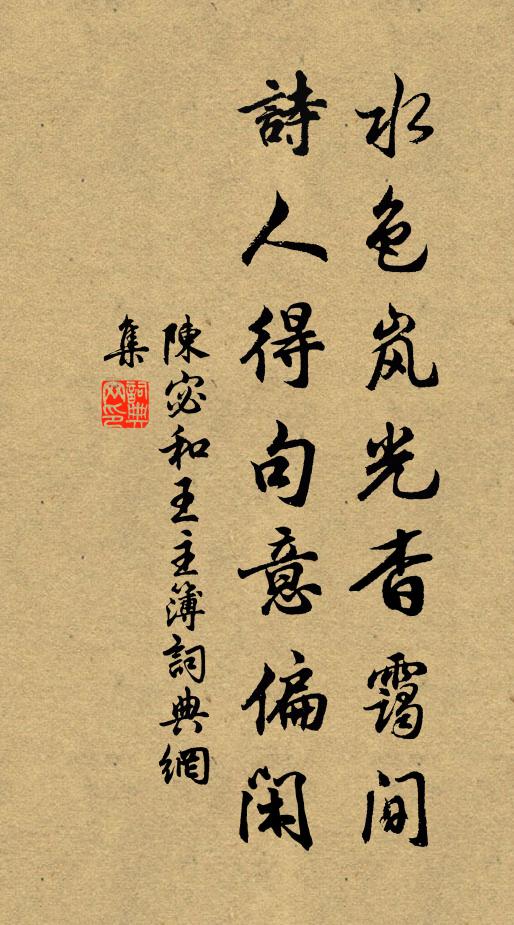 水色岚光杳靄間
詩人得句意偏閑
陳宓和王主簿詞典網
集
詞典
网印